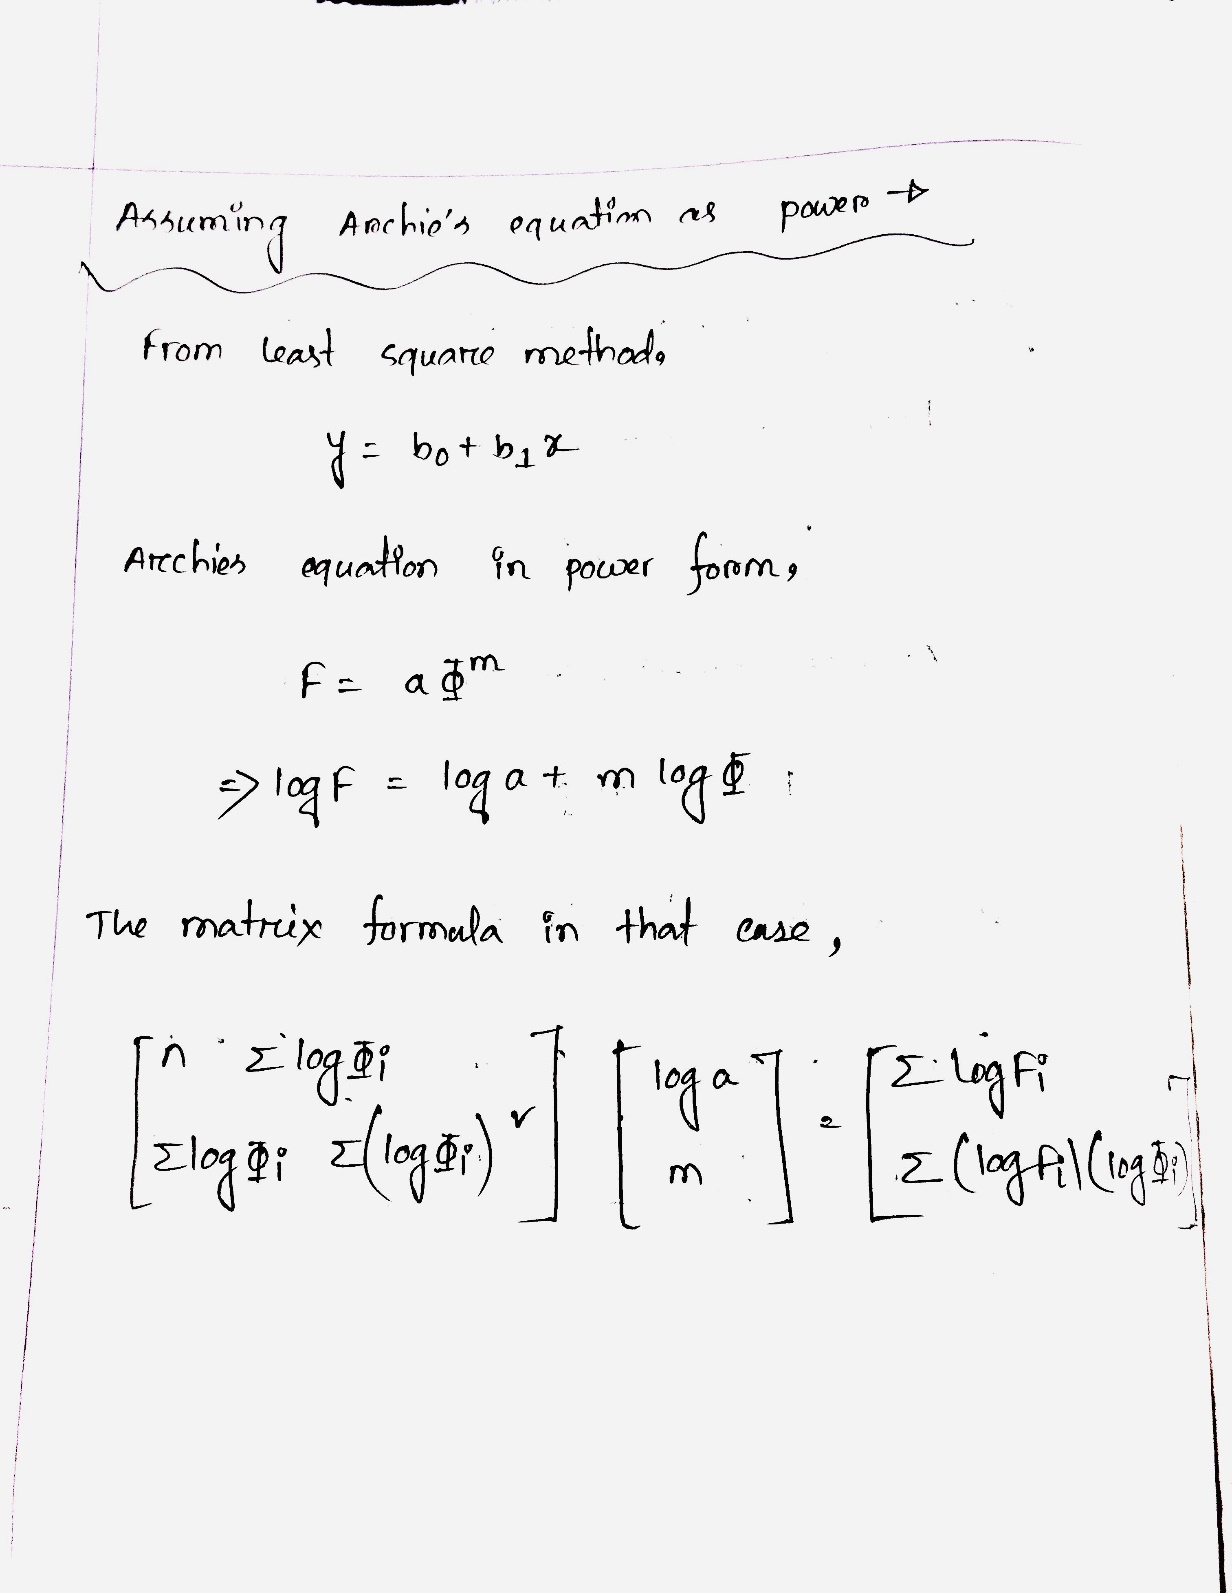 Assuming Archie's equation as power →
From least square method,
y = b0 + b1 x
Archies equation in power form,
F = a Φ^m
⇒ log F = log a + m log Φ
The matrix formula in that case,
[ n Σ log Φi ] [ log a ] = [ Σ log Fi ]
[ Σ log Φi Σ(log Φi)² ] [ m ] [ Σ (log Fi)(log Φi) ]